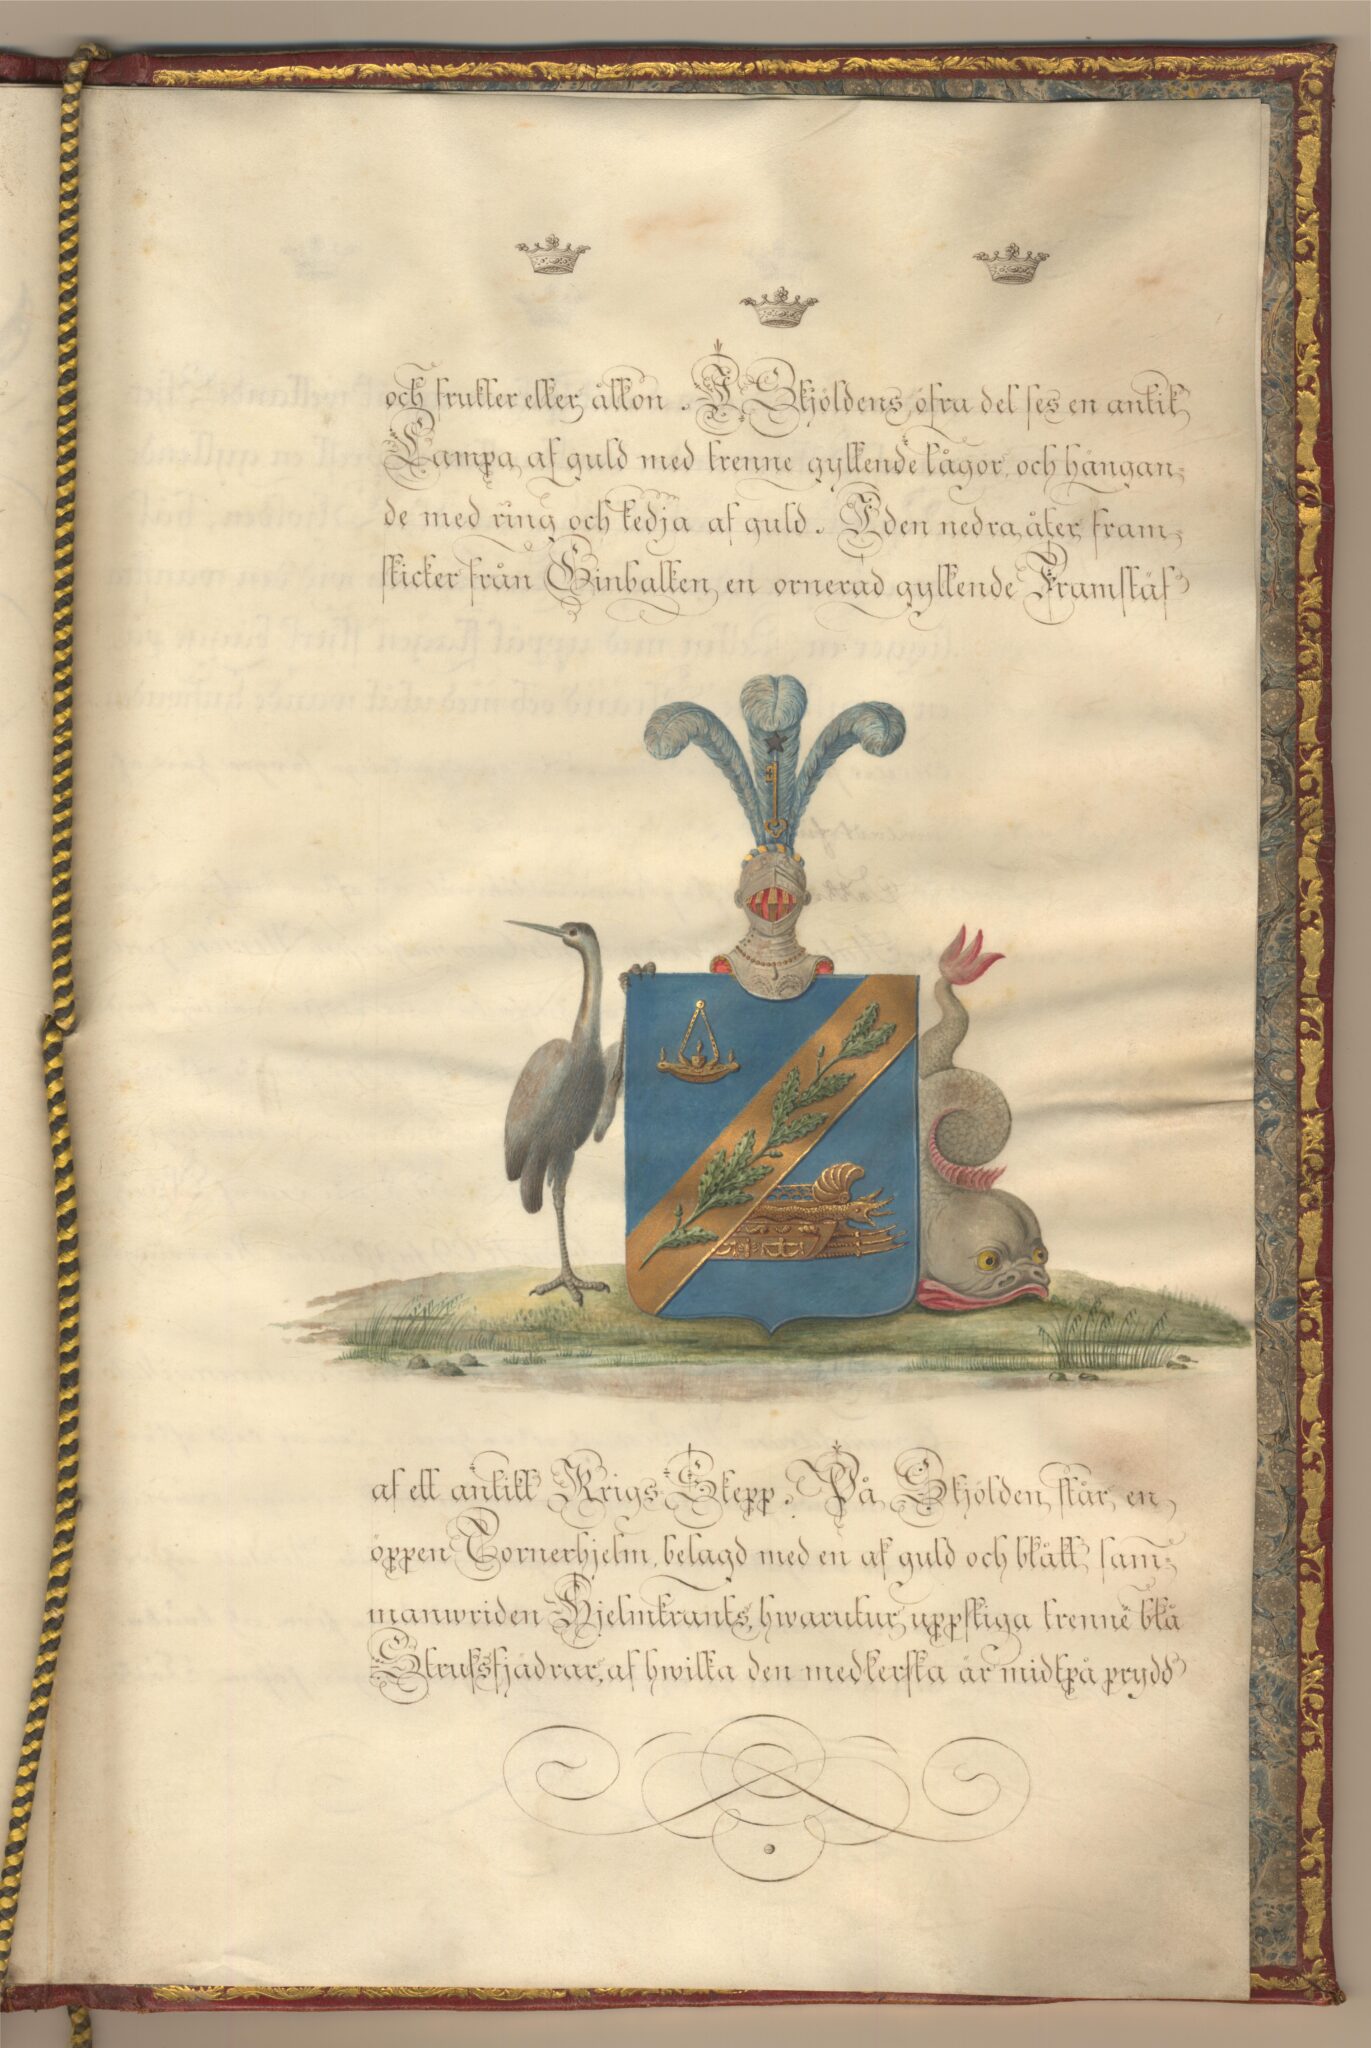 och frukter eller ållon. I Skjöldens öfra del ses en antik
Lampa af guld med trenne gyllende lågor, och hängan-
de med ring och kedja af guld. I den nedra, åter, fram-
sticker från Ginbalken en ornerad gyllende Framstäf
af ett antikt Krigs Skepp. På Skjölden står en
öppen Tornerhjelm, belagd med en af guld och blått sam-
manwriden Hjelmkrants, hwarutur uppstiga trenne blå
Strutsfjädrar, af hwilka den medlersta är midtpå prydd